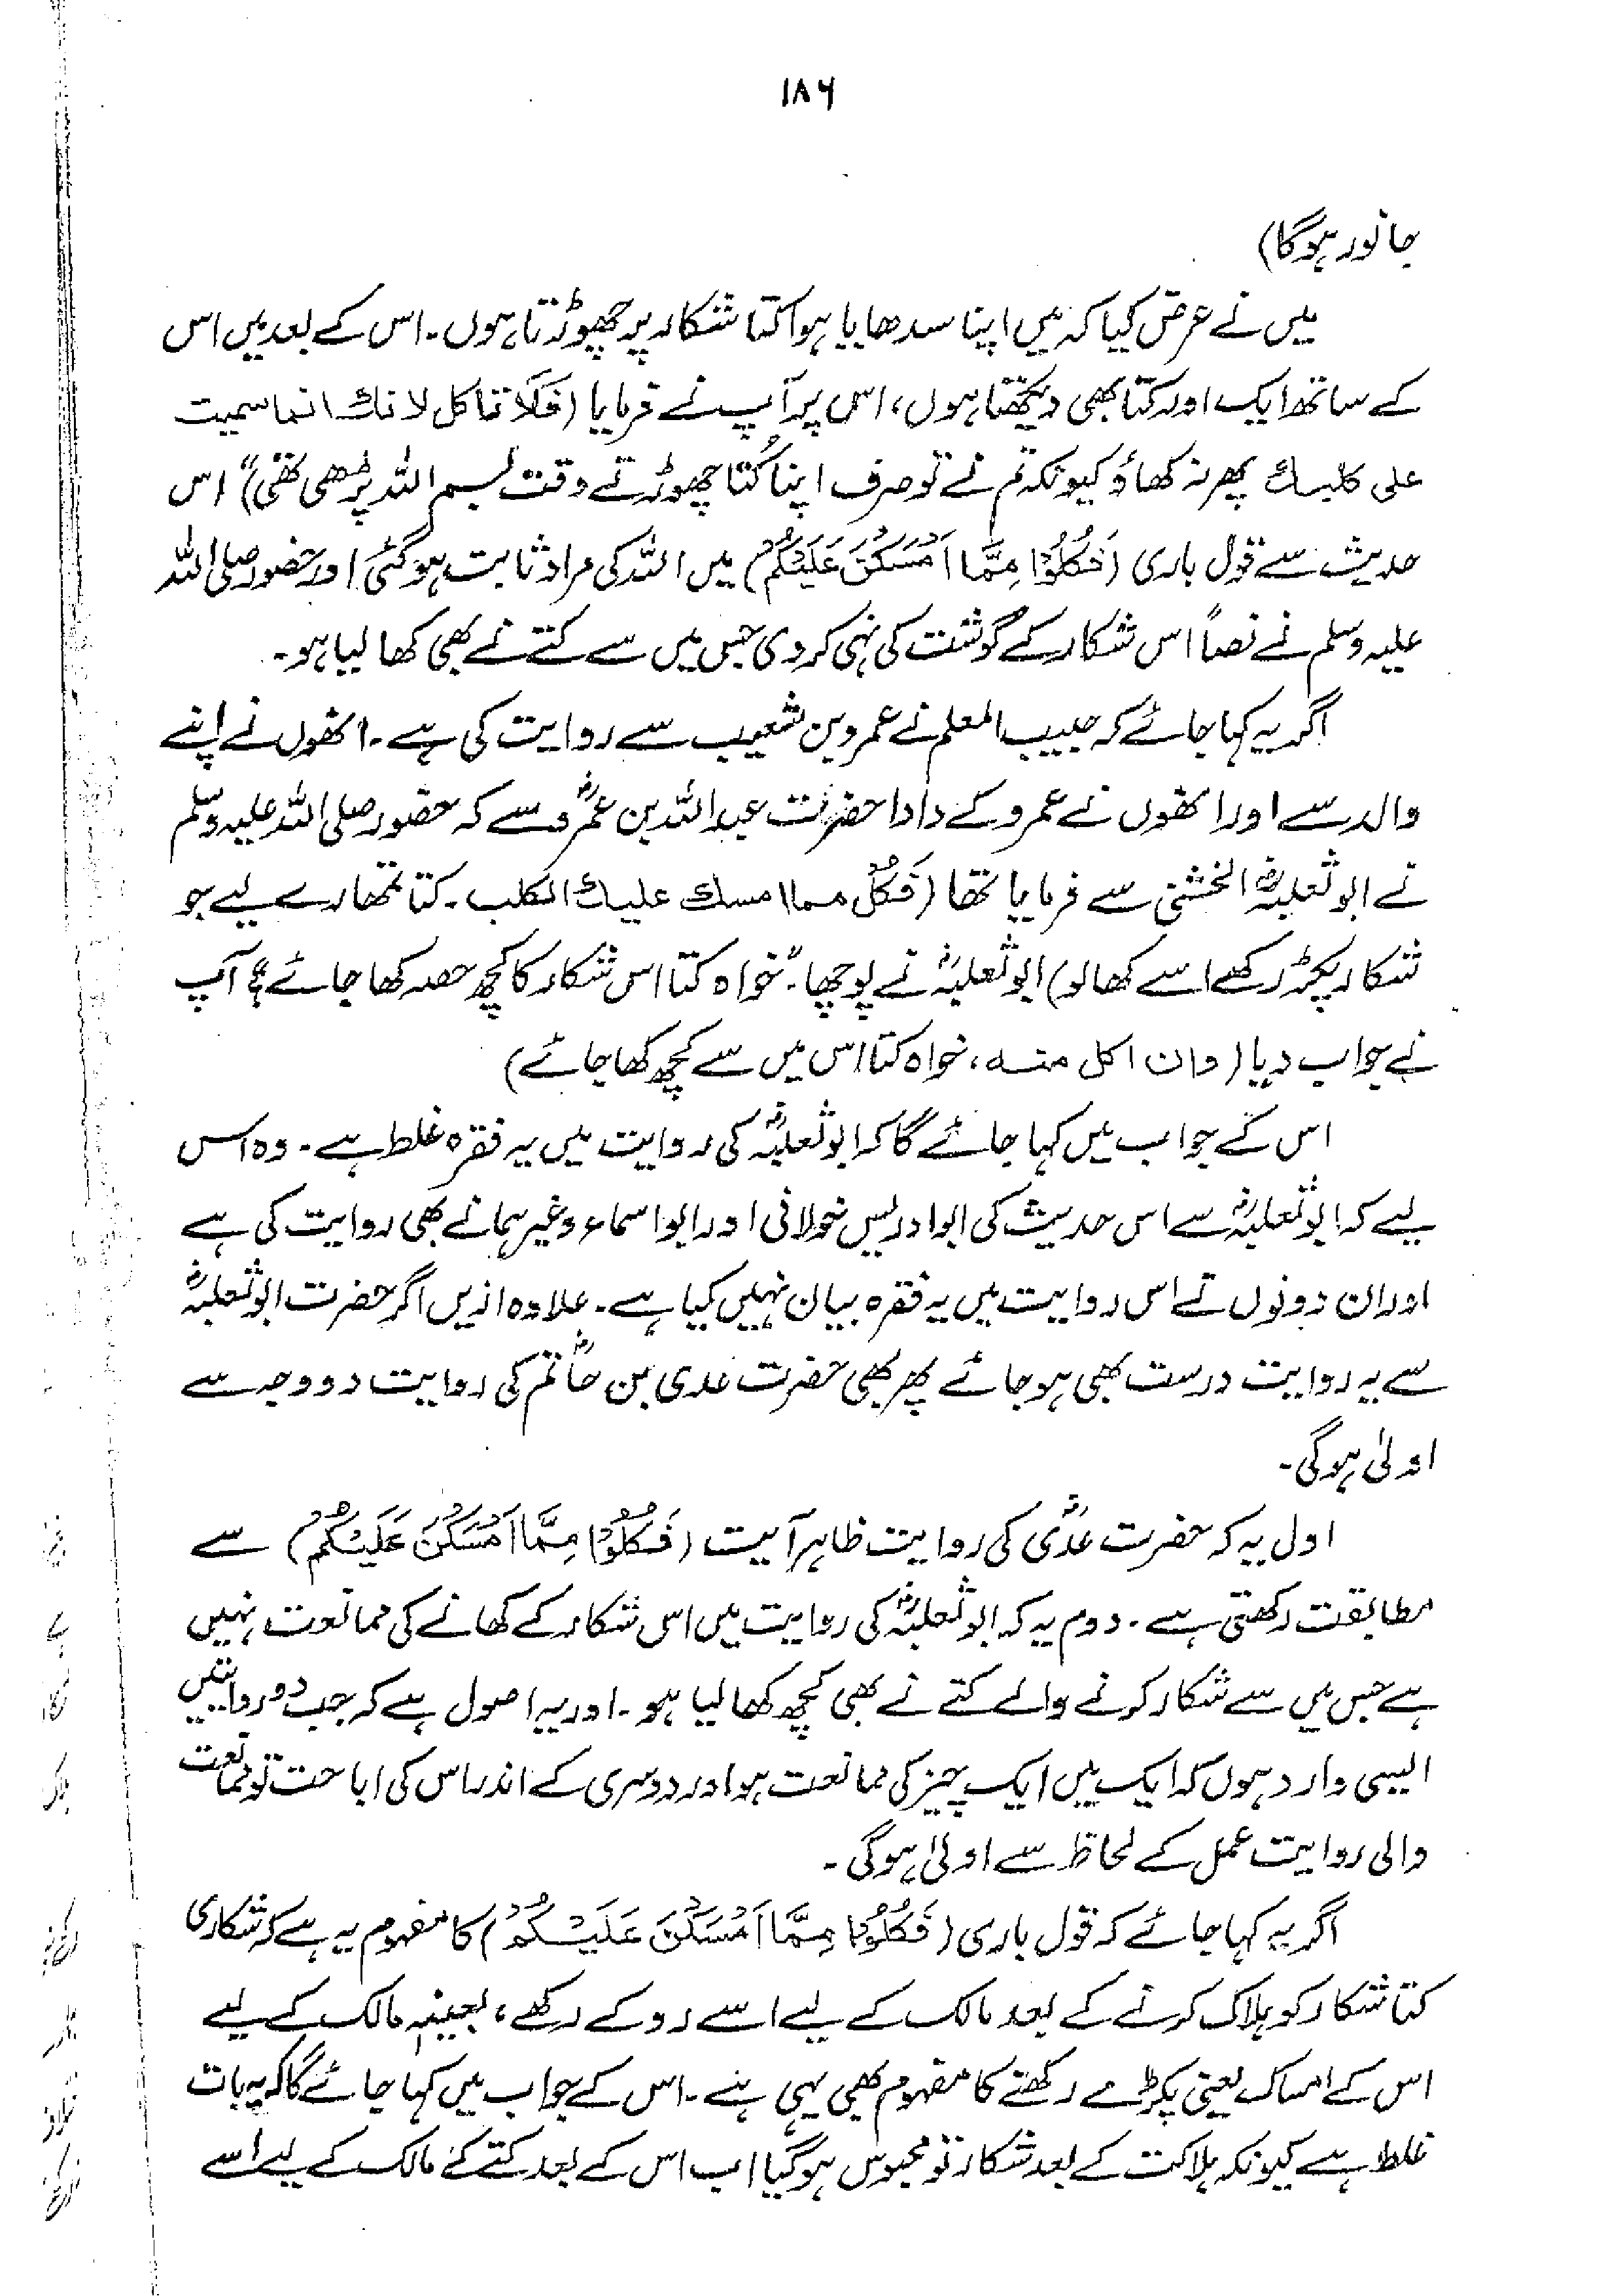 ۱۸۶
جانور ہوگا)
میں نے عرض کیا کہ میں اپنا سدھایا ہوا کتا شکار پر چھوڑتا ہوں۔ اس کے بعد میں اس
کے ساتھ ایک اور کتا بھی دیکھتا ہوں، اس پر آپ نے فرمایا (فَلَا تاکل لانك انما سمیت
علی کلبك پھر نہ کھاؤ کیونکہ تم نے تو صرف اپنا کُتا چھوڑتے وقت بسم اللہ پڑھی تھی)" اس
حدیث سے قول باری (فَكُلُوْا مِمَّا اَمْسَكْنَ عَلَيْكُمْ) میں اللہ کی مراد ثابت ہوگئی اور حضور صلی اللہ
علیہ وسلم نے نصاً اس شکار کے گوشت کی نہی کر دی جس میں سے کتے نے بھی کھا لیا ہو۔
اگر یہ کہا جائے کہ حبیب المعلم نے عمرو بن شعیب سے روایت کی ہے۔ انھوں نے اپنے
والد سے اور انھوں نے عمرو کے دادا حضرت عبداللہ بن عمرؓو سے کہ حضور صلی اللہ علیہ وسلم
نے ابوثعلبہؓ الخشنی سے فرمایا تھا (فَكُلْ مما امسك علیك الکلب۔ کتا تمھارے لیے جو
شکار پکڑ رکھے اسے کھا لو) ابوثعلبہؓ نے پوچھا۔ "خواہ کتا اس شکار کا کچھ حصہ کھا جائے؟" آپ
نے جواب دیا (وان اکل منه، خواہ کتا اس میں سے کچھ کھا جائے)
اس کے جواب میں کہا جائے گا کہ ابوثعلبہؓ کی روایت میں یہ فقرہ غلط ہے۔ وہ اس
لیے کہ ابوثعلبہؓ سے اس حدیث کی ابوادریس خولانی اور ابواسماء وغیرہما نے بھی روایت کی ہے
اور ان دونوں نے اس روایت میں یہ فقرہ بیان نہیں کیا ہے۔ علاوہ ازیں اگر حضرت ابوثعلبہؓ
سے یہ روایت درست بھی ہو جائے پھر بھی حضرت عدی بن حاتمؓ کی روایت دو وجہ سے
اولیٰ ہوگی۔
اول یہ کہ حضرت عدیؓ کی روایت ظاہر آیت (فَكُلُوْا مِمَّا اَمْسَكْنَ عَلَيْكُمْ) سے
مطابقت رکھتی ہے۔ دوم یہ کہ ابوثعلبہؓ کی روایت میں اس شکار کے کھانے کی ممانعت نہیں
ہے جس میں سے شکار کرنے والے کتے نے بھی کچھ کھا لیا ہو۔ اور یہ اصول ہے کہ جب دو روایتیں
ایسی وارد ہوں کہ ایک میں ایک چیز کی ممانعت ہو اور دوسری کے اندر اس کی اباحت تو ممانعت
والی روایت عمل کے لحاظ سے اولیٰ ہوگی۔
اگر یہ کہا جائے کہ قول باری (فَكُلُوْا مِمَّا اَمْسَكْنَ عَلَيْكُمْ) کا مفہوم یہ ہے کہ شکاری
کتا شکار کو ہلاک کرنے کے بعد مالک کے لیے اسے روکے رکھے، بعینہٖ مالک کے لیے
اس کے امساک یعنی پکڑے رکھنے کا مفہوم بھی یہی ہے۔ اس کے جواب میں کہا جائے گا کہ یہ بات
غلط ہے کیونکہ ہلاکت کے بعد شکار تو محبوس ہوگیا اب اس کے بعد کتے کے مالک کے لیے اسے